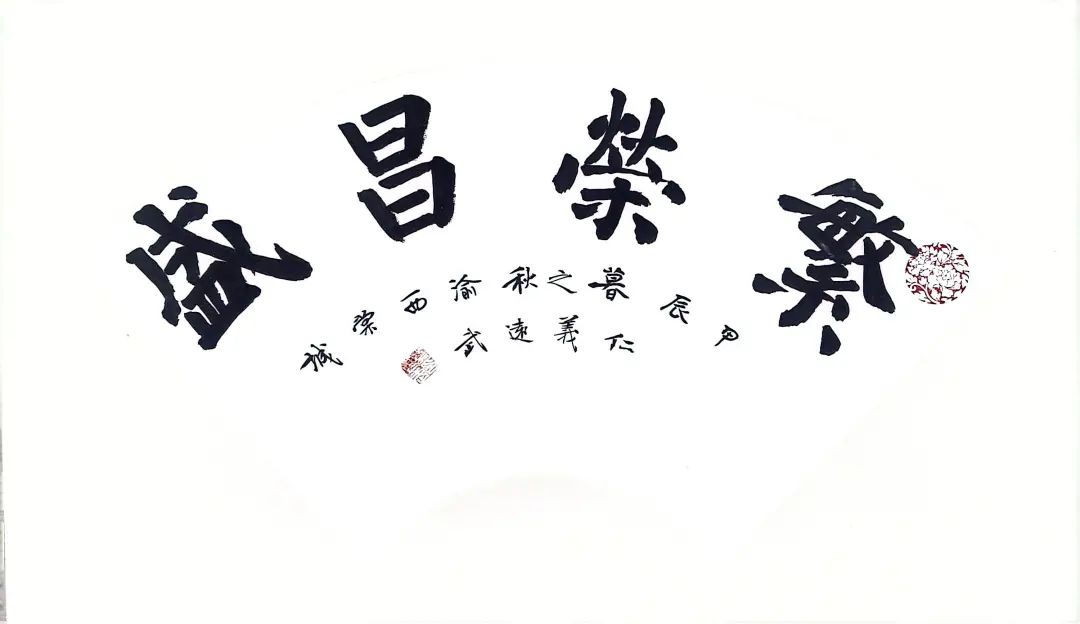 繁榮昌盛
甲辰暮之秋渝西棠城
仁義遠武